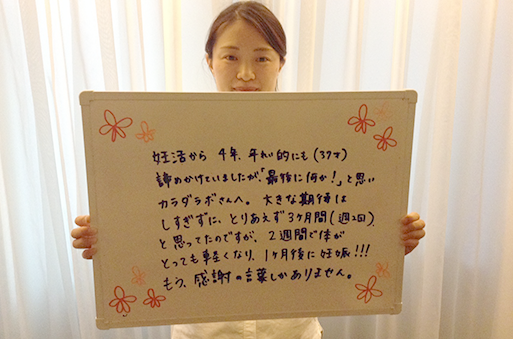 妊活から 4年、年れい的にも(37才)
諦めかけていましたが、「最後に何か!」と思い
カラダラボさんへ。大きな期待は
しすぎずに、とりあえず3ヶ月間(週2回)
と思ってたのですが、2週間で体が
とっても軽くなり、1ヶ月後に妊娠!!!
もう、感謝の言葉しかありません。